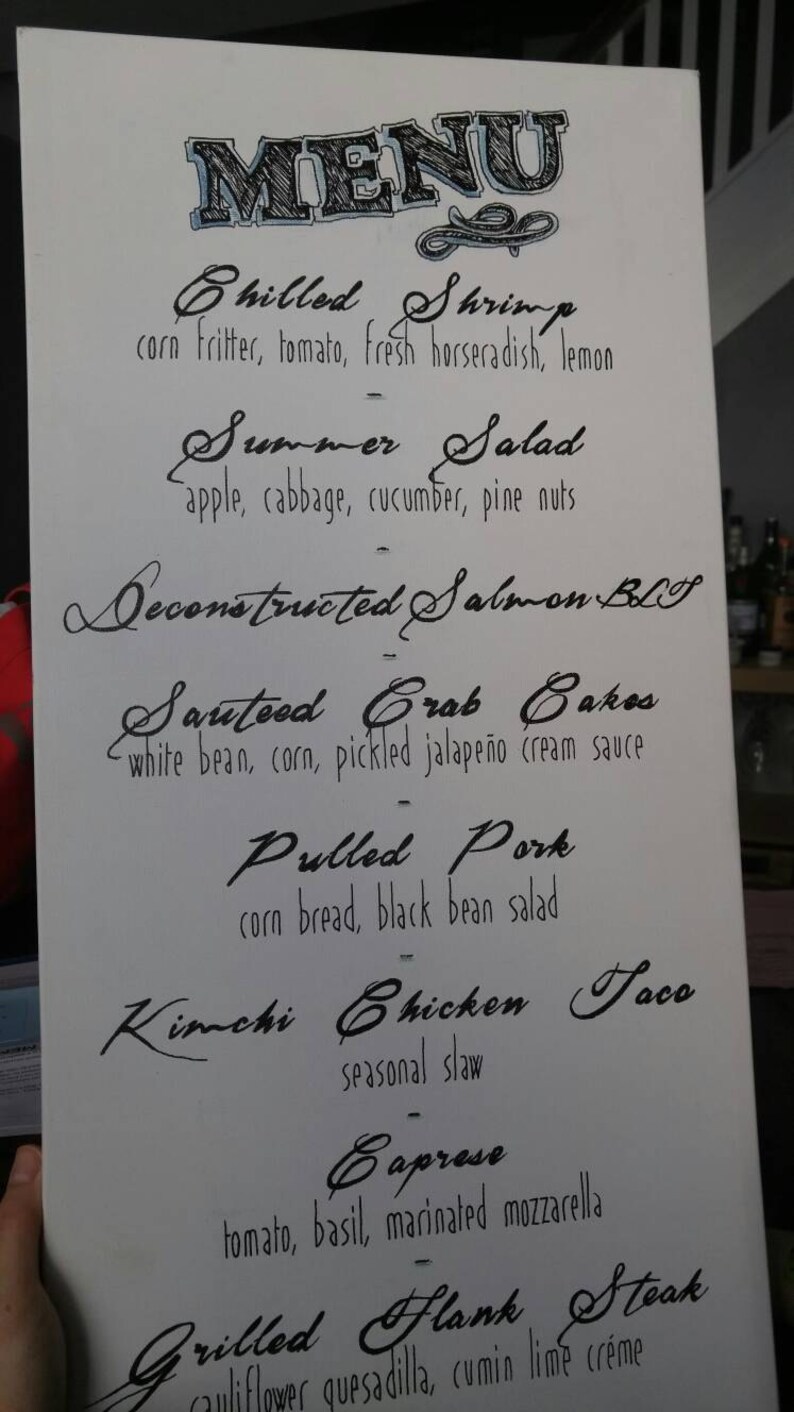 MENU
Chilled Shrimp
corn fritter, tomato, fresh horseradish, lemon
-
Summer Salad
apple, cabbage, cucumber, pine nuts
-
Deconstructed Salmon BLT
-
Sauteed Crab Cakes
white bean, corn, pickled jalapeño cream sauce
-
Pulled Pork
corn bread, black bean salad
-
Kimchi Chicken Taco
seasonal slaw
-
Caprese
tomato, basil, marinated mozzarella
-
Grilled Flank Steak
cauliflower quesadilla, cumin lime créme